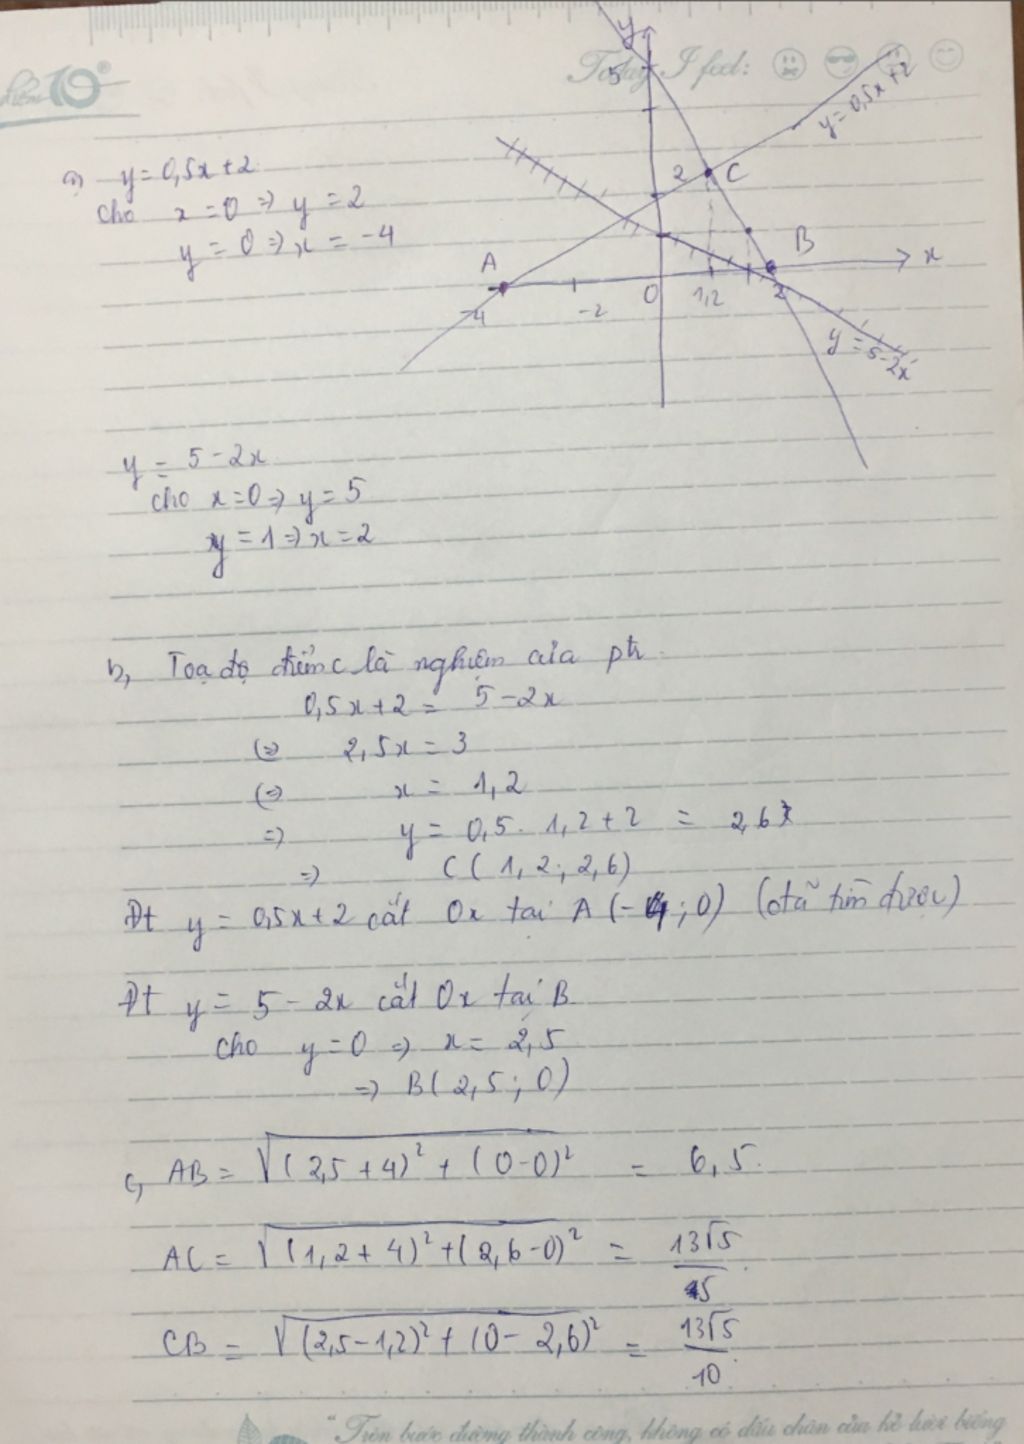 điểm 10
Today I feel:
y
5
y = 0,5x + 2
2
C
a) y = 0,5x + 2
Cho x = 0 => y = 2
y = 0 => x = -4
A
B
x
-4
-2
0
1,2
2
y = 5 - 2x
y = 5 - 2x
cho x = 0 => y = 5
y = 1 => x = 2
b, Toạ độ điểm C là nghiệm của pt
0,5x + 2 = 5 - 2x
(=> 2,5x = 3
(=> x = 1,2
=> y = 0,5 . 1,2 + 2 = 2,6
=> C ( 1,2 ; 2,6)
Đt y = 0,5x + 2 cắt Ox tại A (-4 ; 0) (đã tìm được)
Đt y = 5 - 2x cắt Ox tại B
Cho y = 0 => x = 2,5
=> B( 2,5 ; 0)
c, AB = √(2,5 + 4)² + (0 - 0)² = 6,5.
AC = √(1,2 + 4)² + (2,6 - 0)² = 13√5 / 5
CB = √(2,5 - 1,2)² + (0 - 2,6)² = 13√5 / 10
"Trên bước đường thành công, không có dấu chân của kẻ lười biếng